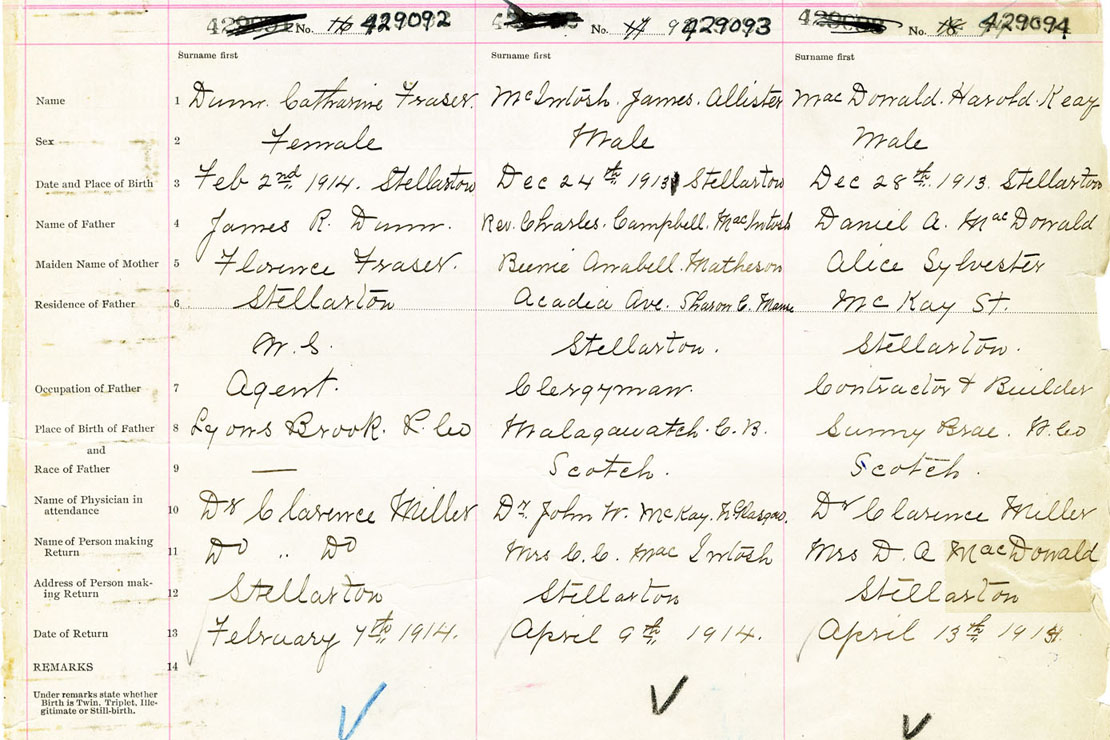 No. 16 429092 No. 17 9 429093 No. 18 429094
Surname first Surname first Surname first
Name 1 Dunn. Catharine Fraser. McIntosh. James. Allister MacDonald. Harold. Keay
Sex 2 Female Male Male
Date and Place of Birth 3 Feb 2nd. 1914. Stellarton Dec 24th 1913 Stellarton Dec 28th. 1913. Stellarton
Name of Father 4 James R. Dunn. Rev. Charles. Campbell. MacIntosh Daniel A. MacDonald
Maiden Name of Mother 5 Florence Fraser. Annabell. Matheson Alice Sylvester
Residence of Father 6 Stellarton Acadia Ave. Sharon C. Manse McKay St.
N.S. Stellarton. Stellarton.
Occupation of Father 7 Agent. Clergyman. Contractor & Builder
Place of Birth of Father 8 Lyons Brook. P. Co Malagawatch. C.B. Sunny Brae. P. Co
and
Race of Father 9 — Scotch. Scotch.
Name of Physician in
attendance 10 Dr Clarence Miller Dr. John W. McKay. N. Glasgow. Dr Clarence Miller
Name of Person making
Return 11 Do " Do Mrs C. C. MacIntosh Mrs D. A MacDonald
Address of Person mak-
ing Return 12 Stellarton Stellarton Stellarton
Date of Return 13 February 7th 1914. April 9th, 1914. April 13th 1914.
REMARKS 14
Under remarks state whether
Birth is Twin, Triplet, Ille-
gitimate or Still-birth.